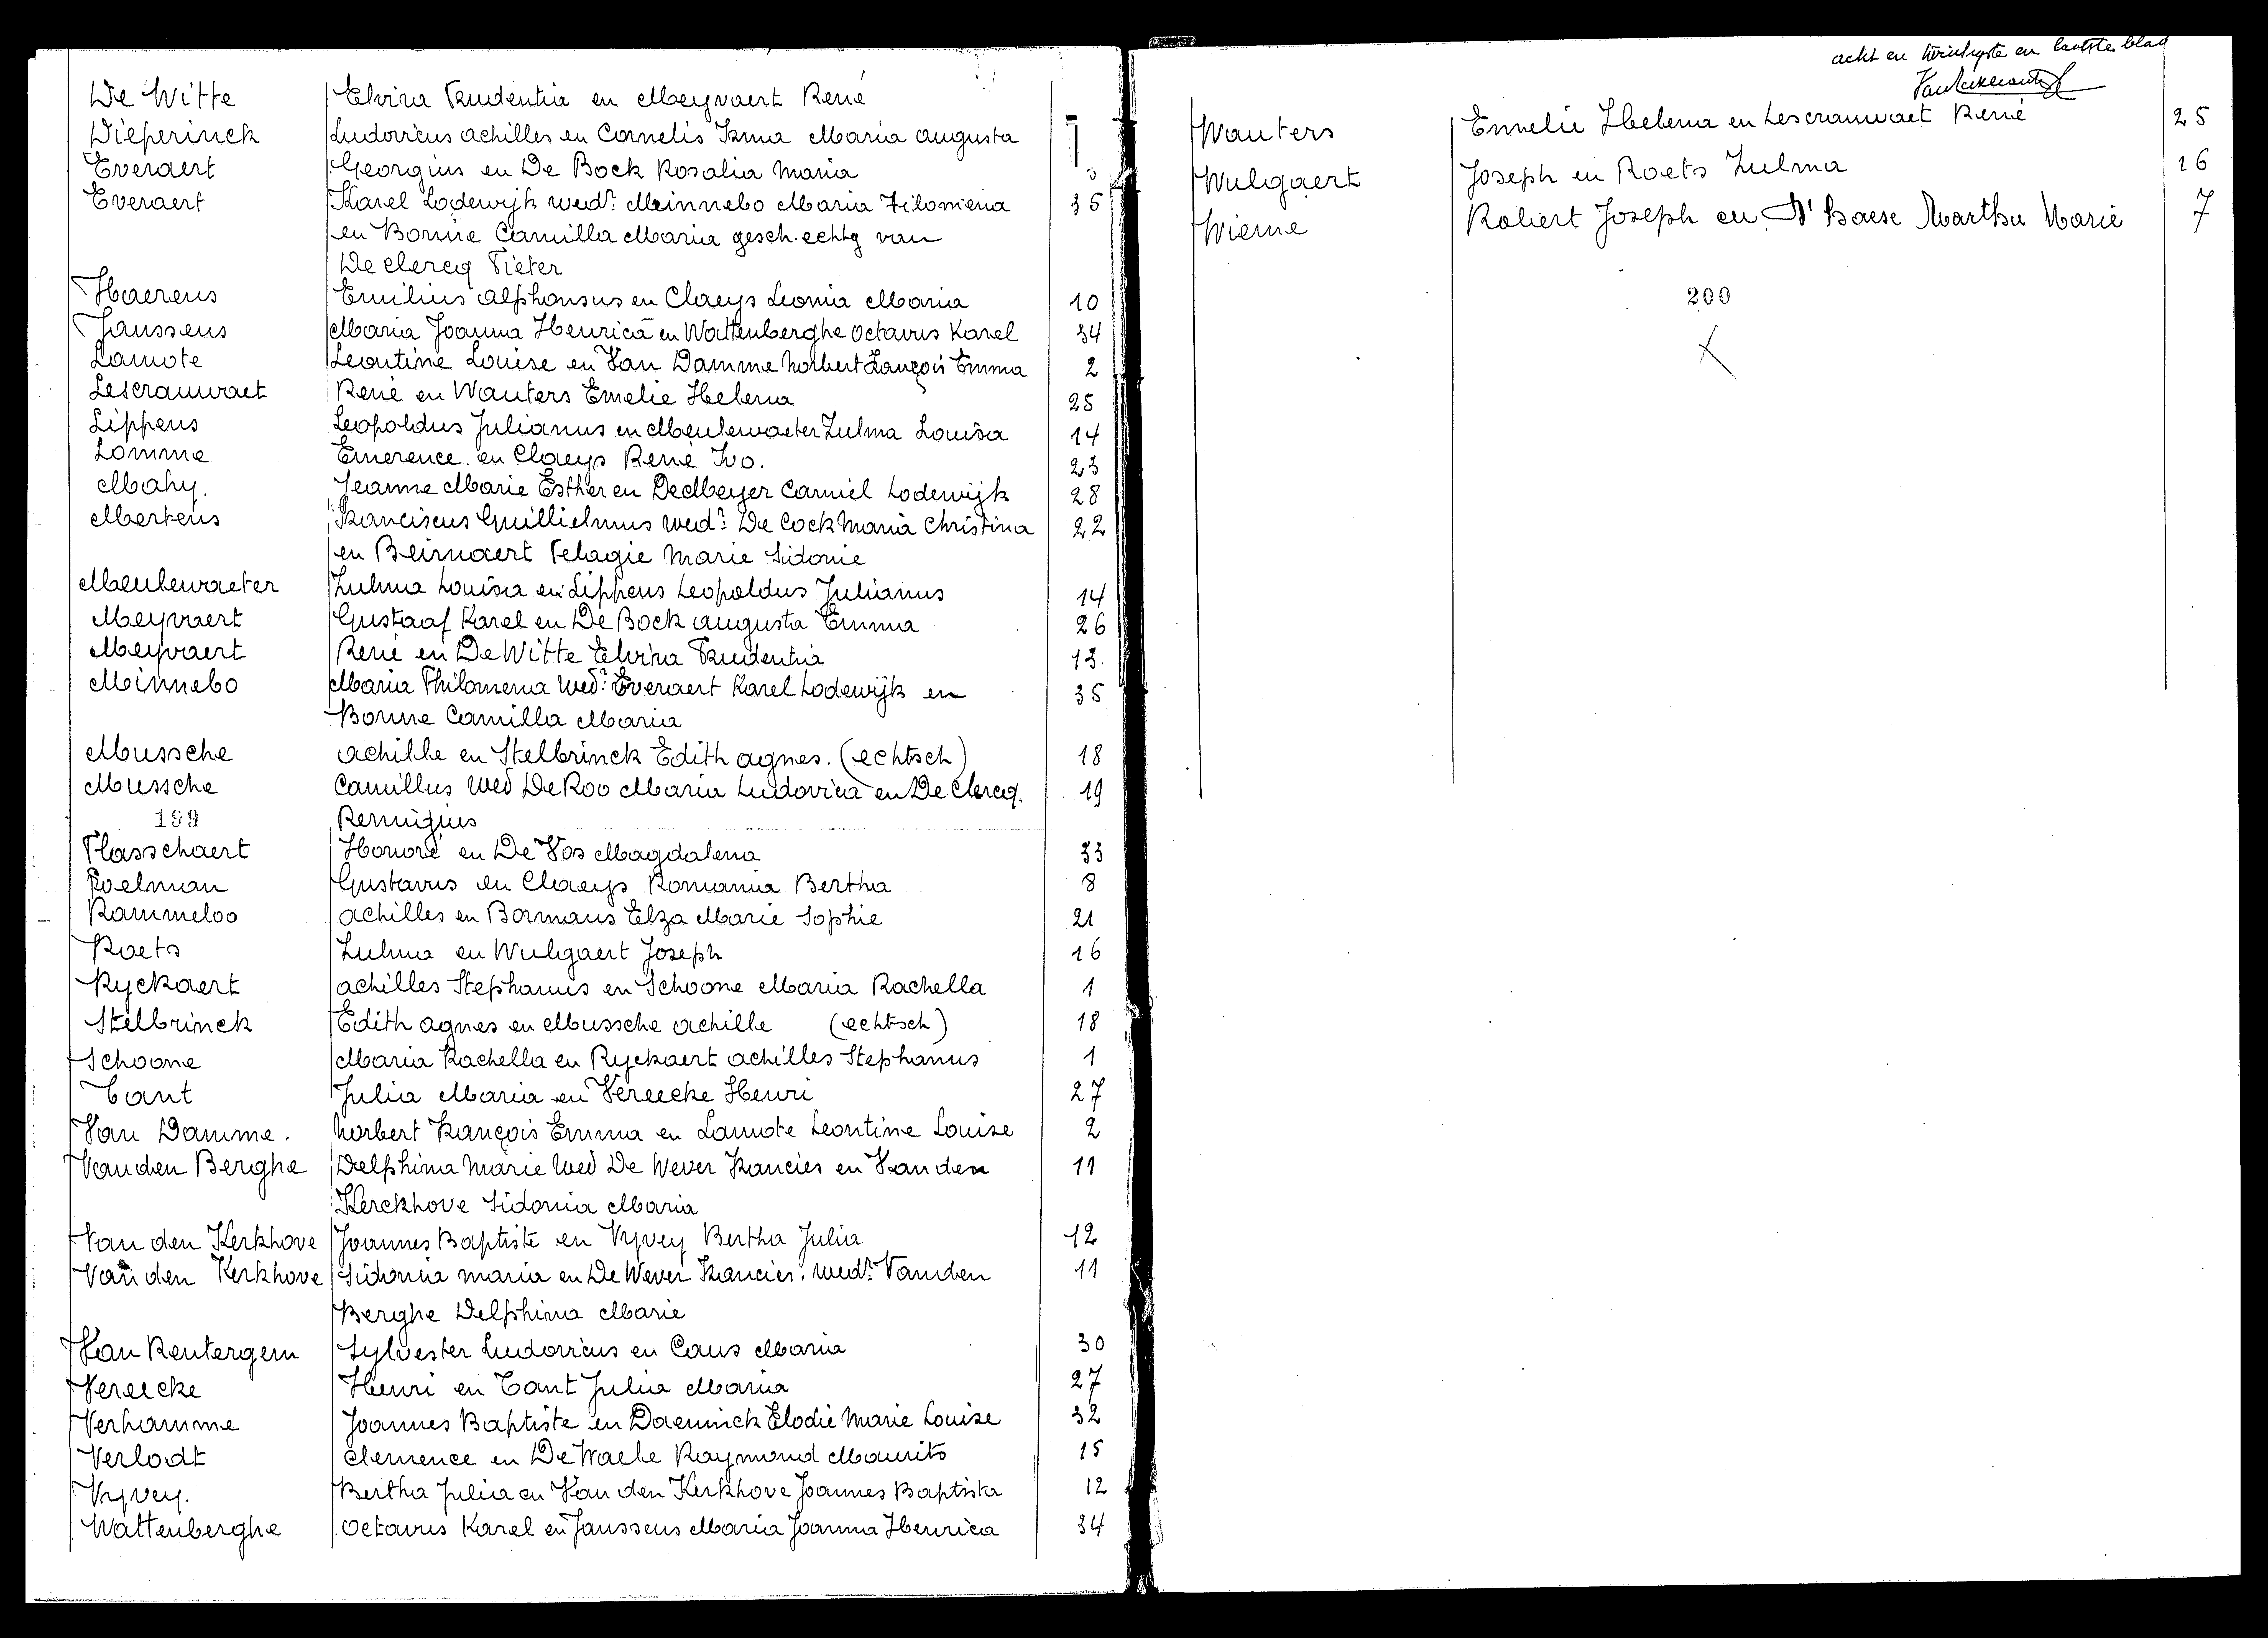 De Witte Elvira Prudentia en Meyvaert René
Dieperinck Ludovicus achilles en Cornelis Irma Maria augusta
Everaert Georgius en De Bock Rosalia Maria
Everaert Karel Lodewijk wedr. Meinnebo Maria Filomena 35
en Bonne Camilla Maria gesch. echtg van
De clercq Pieter
Haerens Emilius alphonsus en Claeys Leonia Maria 10
Janssens Maria Joanna Henrica en Wattenberghe Octavus Karel 34
Lamote Leontine Louise en Van Damme Norbert François Emma 2
Lescrauwaet René en Wauters Emelie Helena 25
Lippens Leopoldus Julianus en Meulewaeter Zulma Louisa 14
Lomme Emerence en Claeys René Ivo. 23
Mahy. Jeanne Marie Esther en De Meyer Camiel Lodewijk 28
Mertens Franciscus Guillielmus wedr. De Cock Maria Christina 22
en Beirnaert Pelagie Marie Sidonie
Meulewaeter Zulma Louisa en Lippens Leopoldus Julianus 14
Meyvaert Gustaaf Karel en De Bock augusta Emma 26
Meyvaert René en De Witte Elvira Prudentia 13.
Minnebo Maria Philomena Wedr. Everaert Karel Lodewijk en 35
Bonne Camilla Maria
Mussche achille en Stelbrinck Edith agnes. (echtsch) 18
Mussche Camillus Wed De Roo Maria Ludovica en De Clercq. 19
199 Remigius
Plasschaert Honoré en De Vos Magdalena 33
Poelman Gustavus en Claeys Romania Bertha 8
Rammeloo achilles en Bormans Elza Marie Sophie 21
Roets Zulma en Wulgaert Joseph 16
Ryckaert achilles Stephanus en Schoone Maria Rachella 1
Stelbrinck Edith agnes en Mussche achille (echtsch) 18
Schoone Maria Rachella en Ryckaert achilles Stephanus 1
Tant Julia Maria en Vereecke Henri 27
Van Damme. Norbert François Emma en Lamote Leontine Louise 2
Vanden Berghe Delphina Marie Wed De Wever Francies en Van den 11
Kerckhove Sidonia Maria
Van den Kerkhove Joannes Baptiste en Vyvey Bertha Julia 12
Van den Kerkhove Sidonia maria en De Wever Francies. wedr. Vanden 11
Berghe Delphina Marie
Van Rentergem Sylvester Ludovicus en Caus Maria 30
Vereecke Henri en Tant Julia Maria 27
Verhamme Joannes Baptiste en Daeninck Elodie Marie Louise 32
Verlodt Clemence en De Waele Raymond Maurits 15
Vyvey. Bertha Julia en Van den Kerkhove Joannes Baptista 12
Wattenberghe Octavus Karel en Janssens Maria Joanna Henrica 34
acht en twintigste en laatste blad
Wauters Emelie Helena en Lescrauwaet René 25
Wulgaert Joseph en Roets Zulma 16
Wieme Robert Joseph en D'Baese Martha Marie 7
200